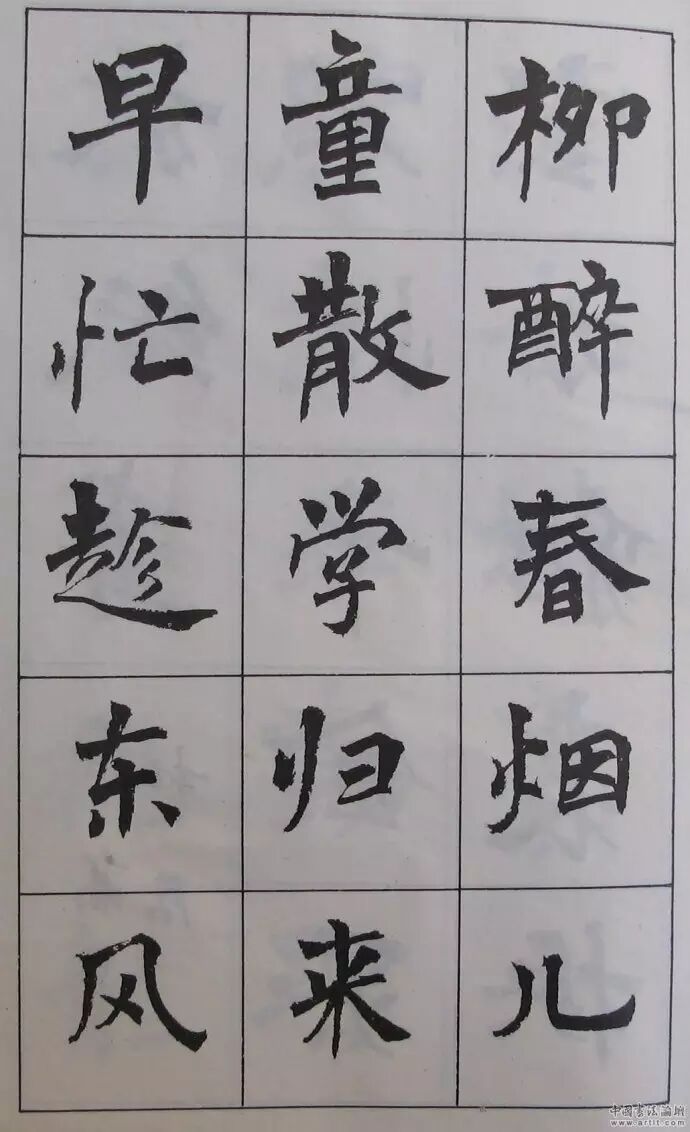 柳醉春烟儿
童散学归来
早忙趁东风
中国书法论坛
www.artit.com